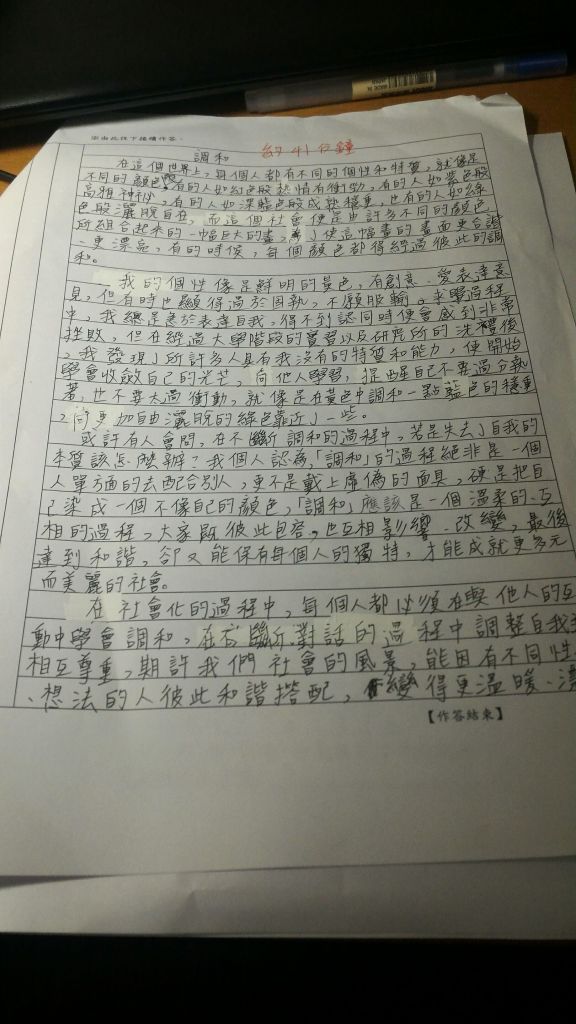 請由此往下接續作答。
調和 約41分鐘
在這個世界上，每個人都有不同的個性和特質，就像是
不同的顏色般，有的人如紅色般熱情有衝勁，有的人如紫色般
高雅神秘，有的人如深藍色般成熟穩重，也有的人如綠
色般灑脫自在。而這個社會便是由許多不同的顏色
所組合起來的一幅巨大的畫，為了使這幅畫的畫面更合諧
、更漂亮，有的時候，每個顏色都得經過彼此的調
和。
我的個性像是鮮明的黃色，有創意、愛表達意
見，但有時也顯得過於固執，不願服輸。求學過程
中，我總是急於表達自我，得不到認同時便會感到非常
挫敗，但在經過大學階段的實習以及研究所的洗禮後
，我發現了許多人具有我沒有的特質和能力，便開始
學會收斂自己的光芒，向他人學習，提醒自己不要過分執
著，也不要太過衝動，就像是在黃色中調和一點藍色的穩重
，向更加自由灑脫的綠色靠近了一些。
或許有人會問，在不斷調和的過程中，若是失去了自我的
本質該怎麼辦？我個人認為「調和」的過程絕非是一個
人單方面的去配合別人，更不是戴上虛偽的面具，硬是把自
己染成一個不像自己的顏色，「調和」應該是一個溫柔的、互
相的過程，大家既彼此包容，也互相影響、改變，最後
達到和諧，卻又能保有每個人的獨特，才能成就更多元
而美麗的社會。
在社會化的過程中，每個人都必須在與他人的互
動中學會調和，在不斷對話的過程中調整自我
相互尊重，期許我們社會的風景，能因有不同性
、想法的人彼此和諧搭配，變得更溫暖、
【作答結束】